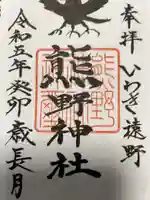 奉拝
いわき遠野
熊野神社
令和五年癸卯歳長月